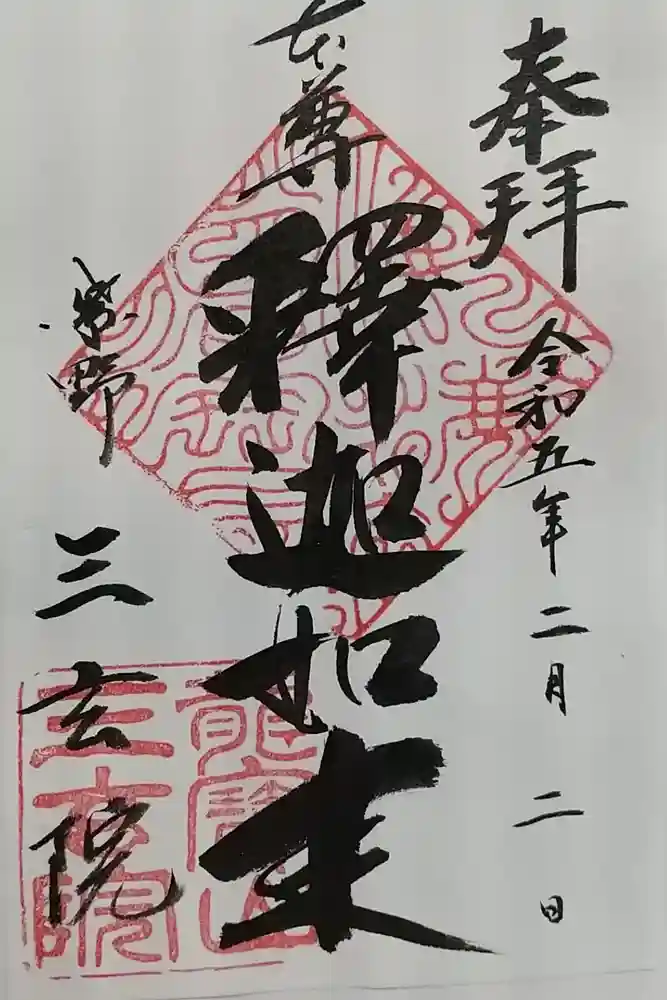 奉拝
令和五年二月二日
本尊
釋迦如来
紫野
三玄院
龍寳山
三玄院